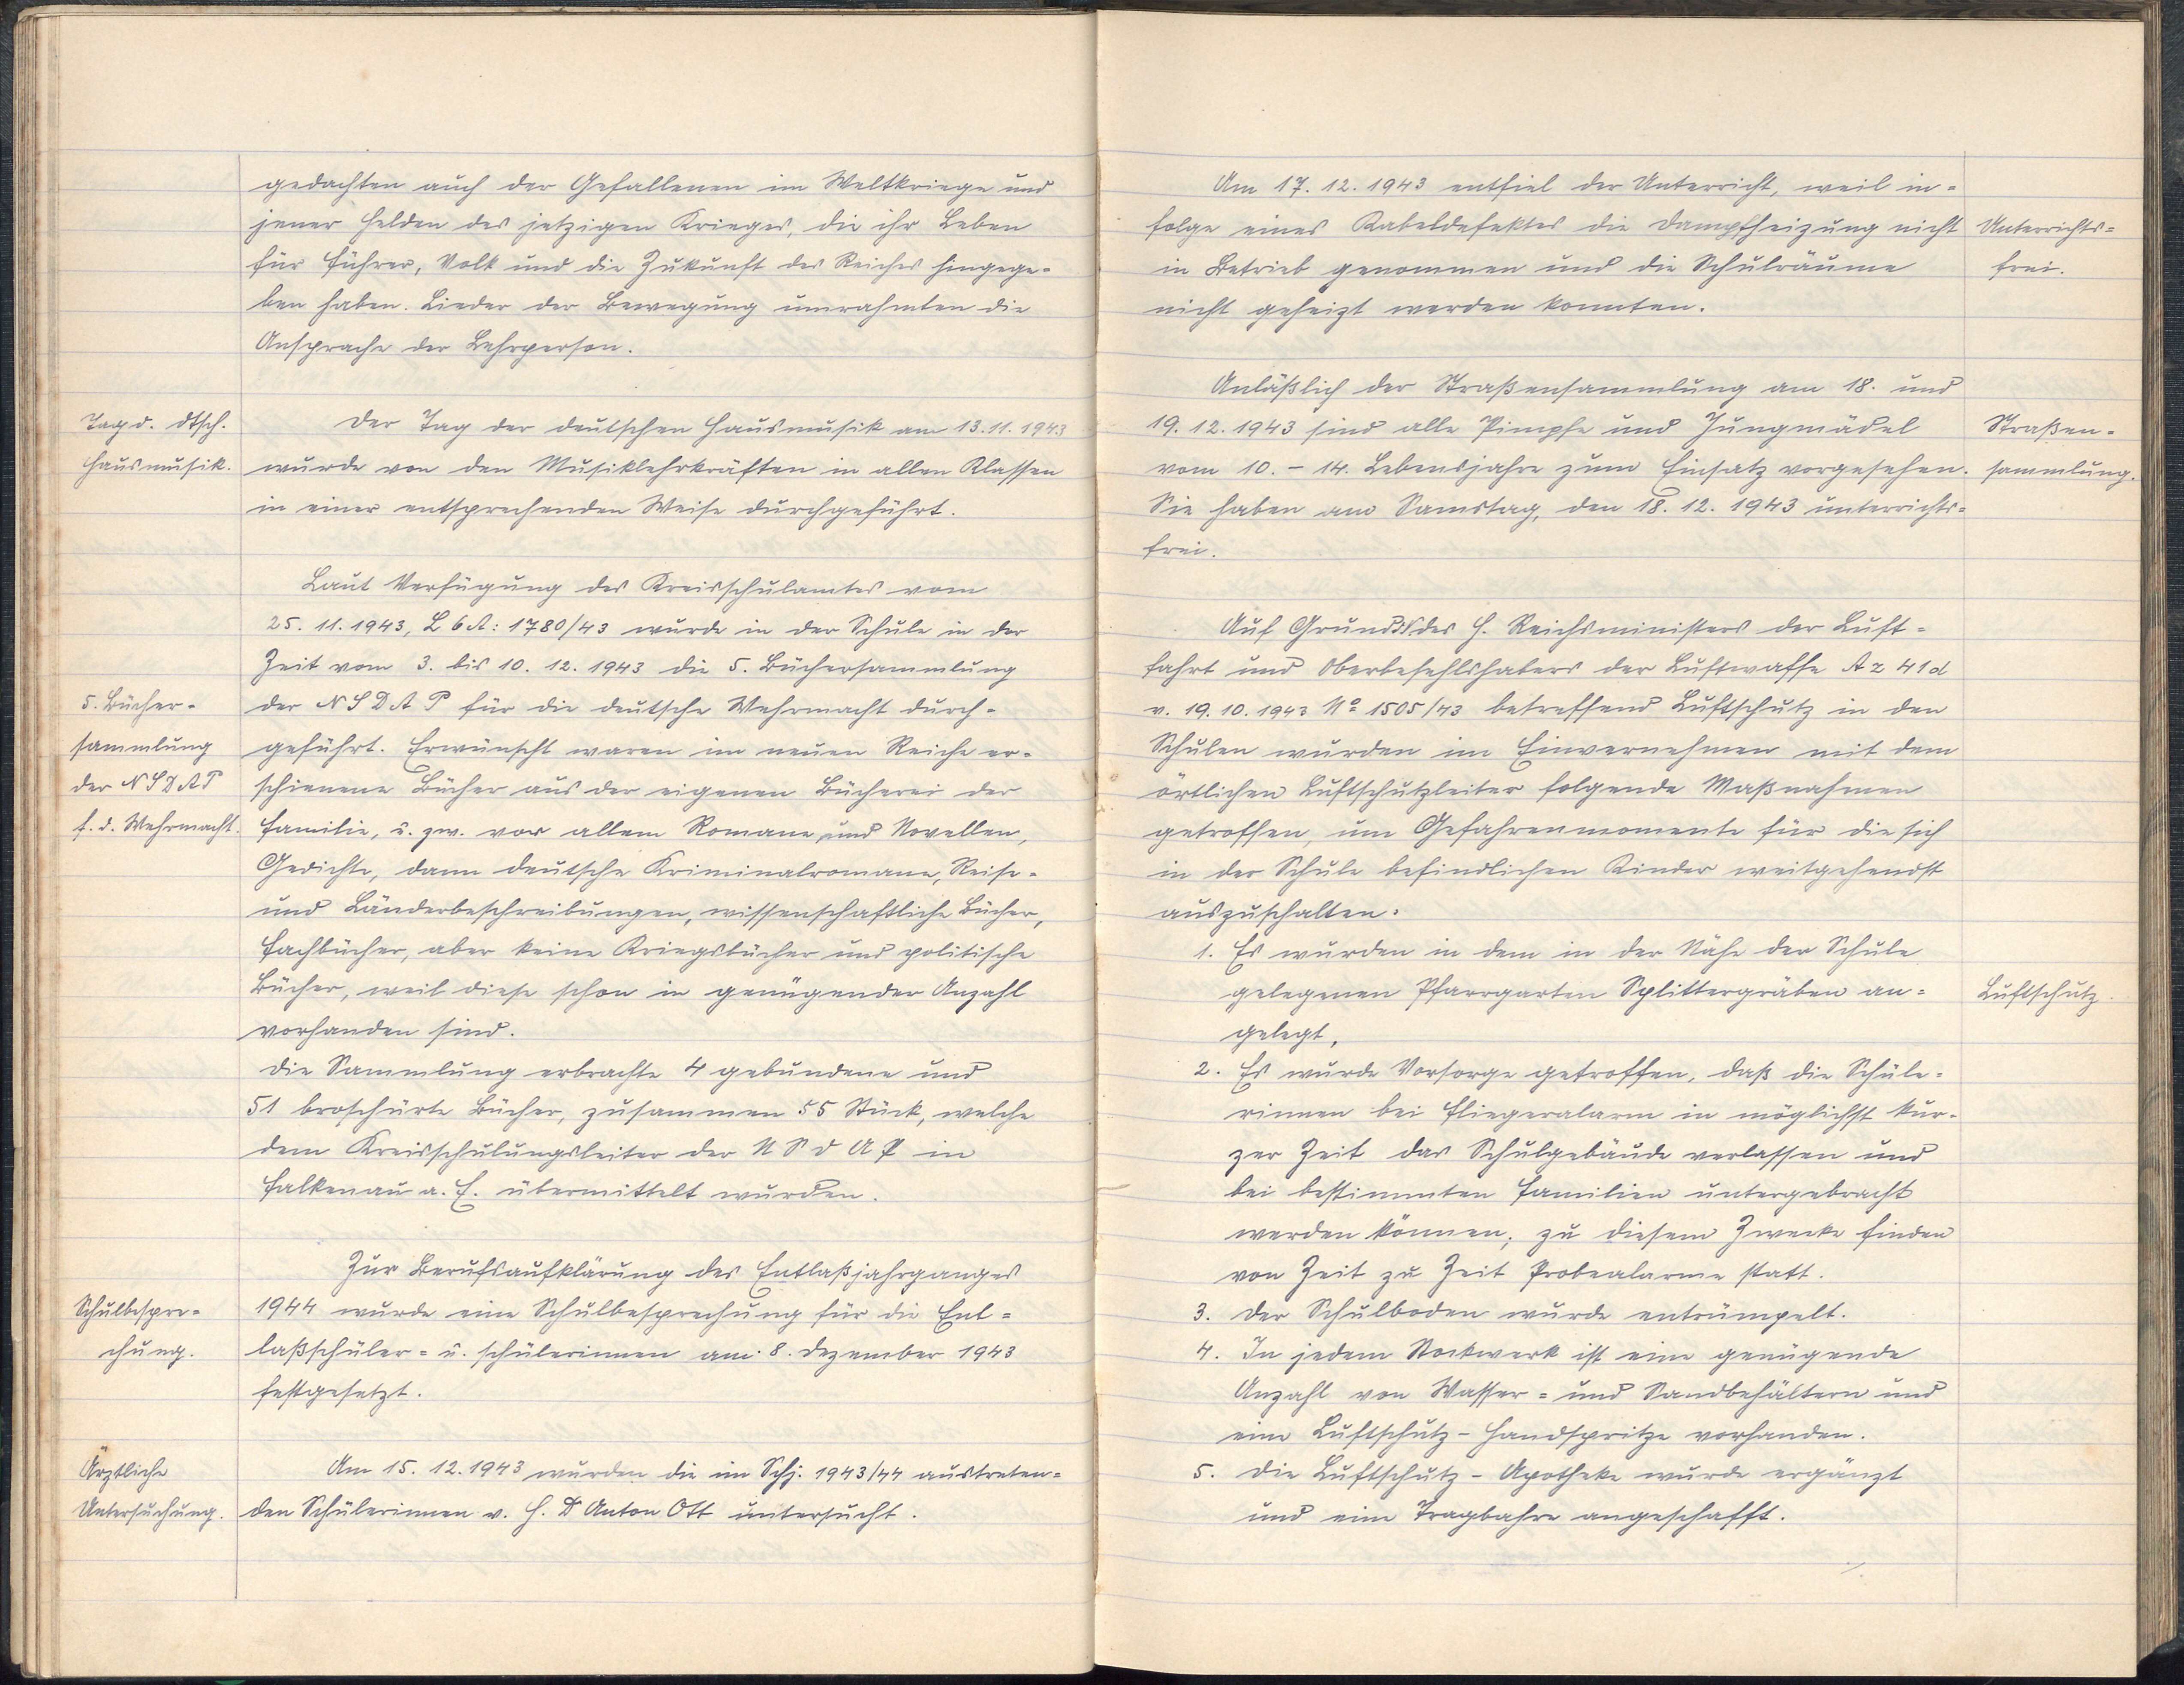 gedachten auch der Gefallenen im Weltkriege und
jener Helden des jetzigen Krieges, die ihr Leben
für Führer, Volk und die Zukunft des Reiches hingege-
ben haben. Lieder der Bewegung umrahmten die
Ansprache der Lehrperson.
Tag d. dtsch.
Hausmusik.
Der Tag der deutschen Hausmusik am 13.11.1943
wurde von den Musiklehrkräften in allen Klassen
in einer entsprechenden Weise durchgeführt.
Laut Verfügung des Kreisschulamtes vom
25. 11. 1943, L 6 A: 1780/43 wurde in der Schule in der
Zeit vom 3. bis 10. 12. 1943 die 5. Büchersammlung
5. Bücher-
sammlung
der NSDAP
f. d. Wehrmacht.
der NSDAP für die deutsche Wehrmacht durch-
geführt. Erwünscht waren im neuen Reiche er-
schienene Bücher aus der eigenen Bücherei der
Familie, u. zw. vor allem Romane und Novellen,
Gedichte, dann deutsche Kriminalromane, Reise-
und Länderbeschreibungen, wissenschaftliche Bücher,
Fachbücher, aber keine Kriegsbücher und politische
Bücher, weil diese schon in genügender Anzahl
vorhanden sind.
Die Sammlung erbrachte 4 gebundene und
51 broschürte Bücher, zusammen 55 Stück, welche
dem Kreisschulungsleiter der NSDAP in
Falkenau a. E. übermittelt wurden.
Zur Berufsaufklärung des Entlaßjahrganges
Schulbespre=
chung.
1944 wurde eine Schulbesprechung für die Ent=
laßschüler= u. schülerinnen am 8. Dezember 1943
festgesetzt.
Ärztliche
Untersuchung.
Am 15. 12. 1943 wurden die im Schj. 1943/44 austreten=
den Schülerinnen v. H. Dr Anton Ott untersucht.
Am 17. 12. 1943 entfiel der Unterricht, weil in=
folge eines Kabeldefektes die Dampfheizung nicht
in Betrieb genommen und die Schulräume
nicht geheizt werden konnten.
Unterrichts=
frei.
Anläßlich der Straßensammlung am 18. und
19. 12. 1943 sind alle Pimpfe und Jungmädel
vom 10. - 14. Lebensjahre zum Einsatz vorgesehen.
Sie haben am Samstag, den 18. 12. 1943 unterrichts=
frei.
Straßen=
sammlung.
Auf Grund des H. Reichsministers der Luft=
fahrt und Oberbefehlshabers der Luftwaffe Az 41d
v. 19. 10. 1943 No 1505/43 betreffend Luftschutz in den
Schulen wurden im Einvernehmen mit dem
örtlichen Luftschutzleiter folgende Maßnahmen
getroffen, um Gefahrenmomente für die sich
in der Schule befindlichen Kinder weitgehendst
auszuschalten:
1. Es wurden in dem in der Nähe der Schule
gelegenen Pfarrgarten Splittergräben an=
gelegt,
Luftschutz.
2. Es wurde Vorsorge getroffen, daß die Schüle=
rinnen bei Fliegeralarm in möglichst kur-
zer Zeit das Schulgebäude verlassen und
bei bestimmten Familien untergebracht
werden können; zu diesem Zwecke finden
von Zeit zu Zeit Probealarme statt.
3. Der Schulboden wurde entrümpelt.
4. In jedem Stockwerk ist eine genügende
Anzahl von Wasser= und Sandbehältern und
eine Luftschutz-Handspritze vorhanden.
5. Die Luftschutz-Apotheke wurde ergänzt
und eine Tragbahre angeschafft.